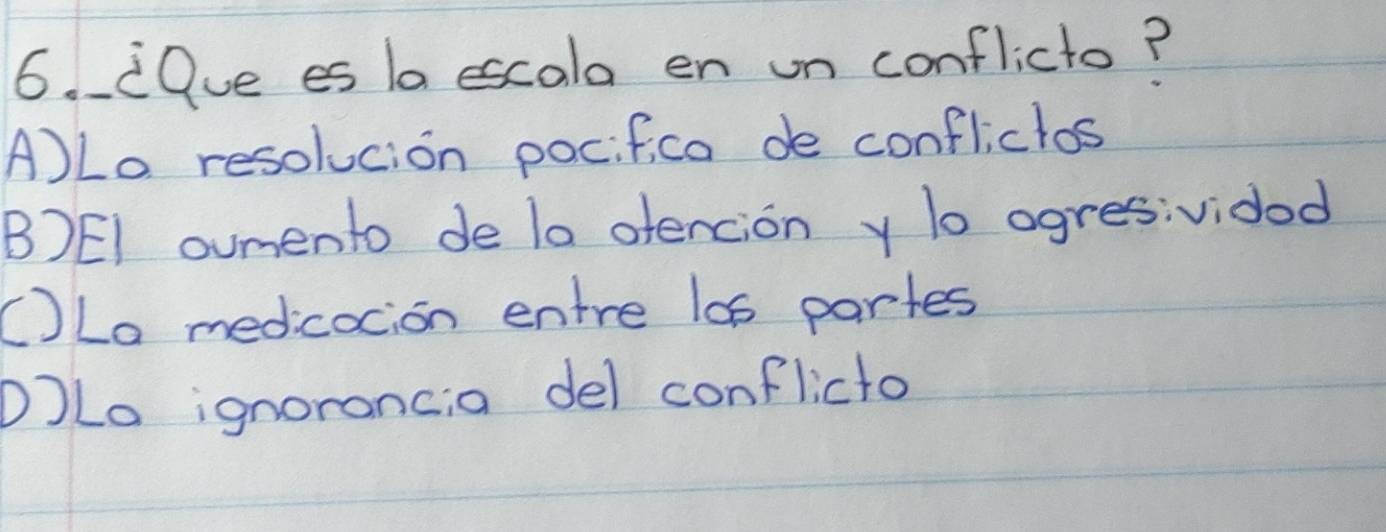 6._¿Que es la escala en un conflicto?
A) La resolución pacifica de conflictos
B) El aumento de la atención y la agresividad
C) La medicación entre las partes
D) La ignorancia del conflicto